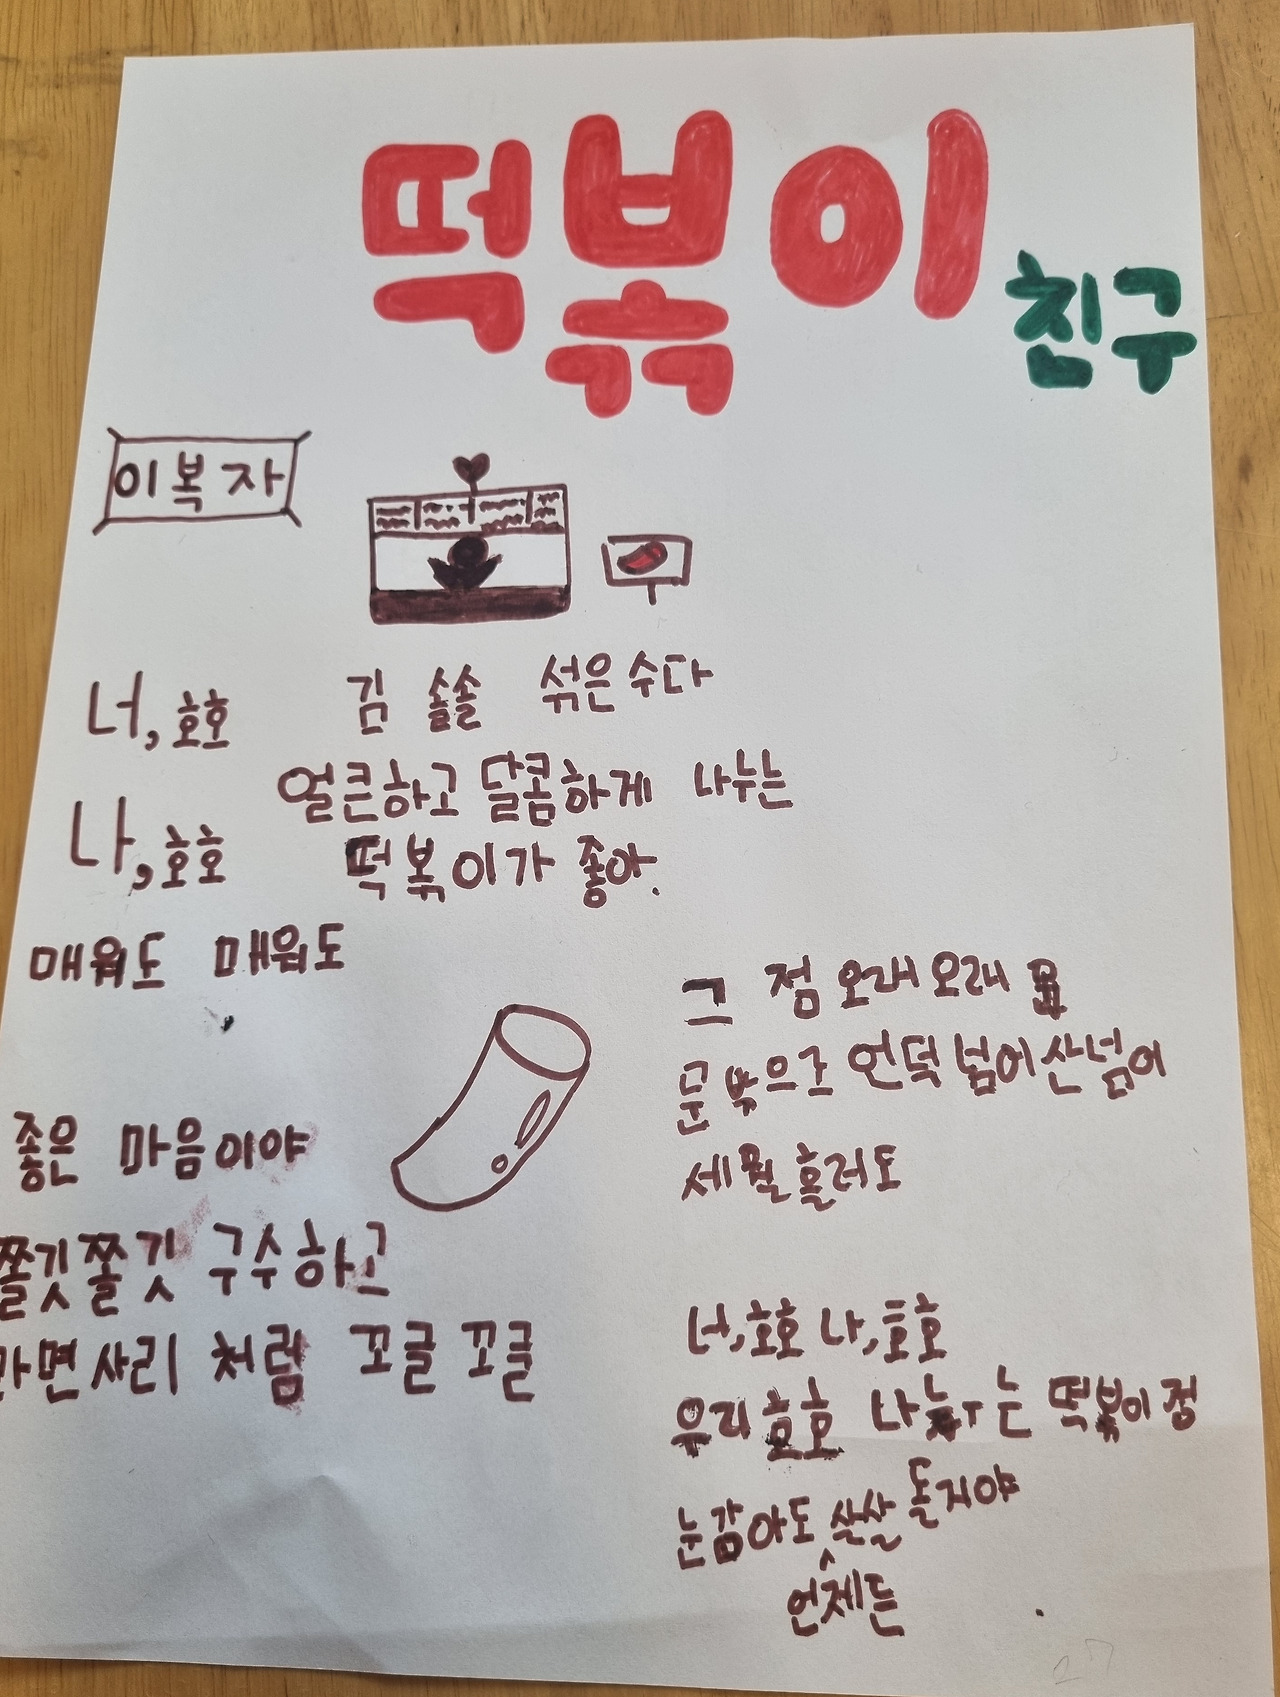 떡볶이
친구
이복자
너, 호호 김 솔솔 섞은 수다
얼큰하고 달콤하게 나누는
나, 호호 떡볶이가 좋아.
매워도 매워도
좋은 마음이야
쫄깃쫄깃 구수하고
라면사리 처럼 꼬글 꼬글
그 점 오래오래
문 밖으로 언덕 넘어 산넘어
세월 흘러도
너, 호호 나, 호호
우리 호호 나누는 떡볶이 정
눈감아도 살살 돌지야
언제든
27